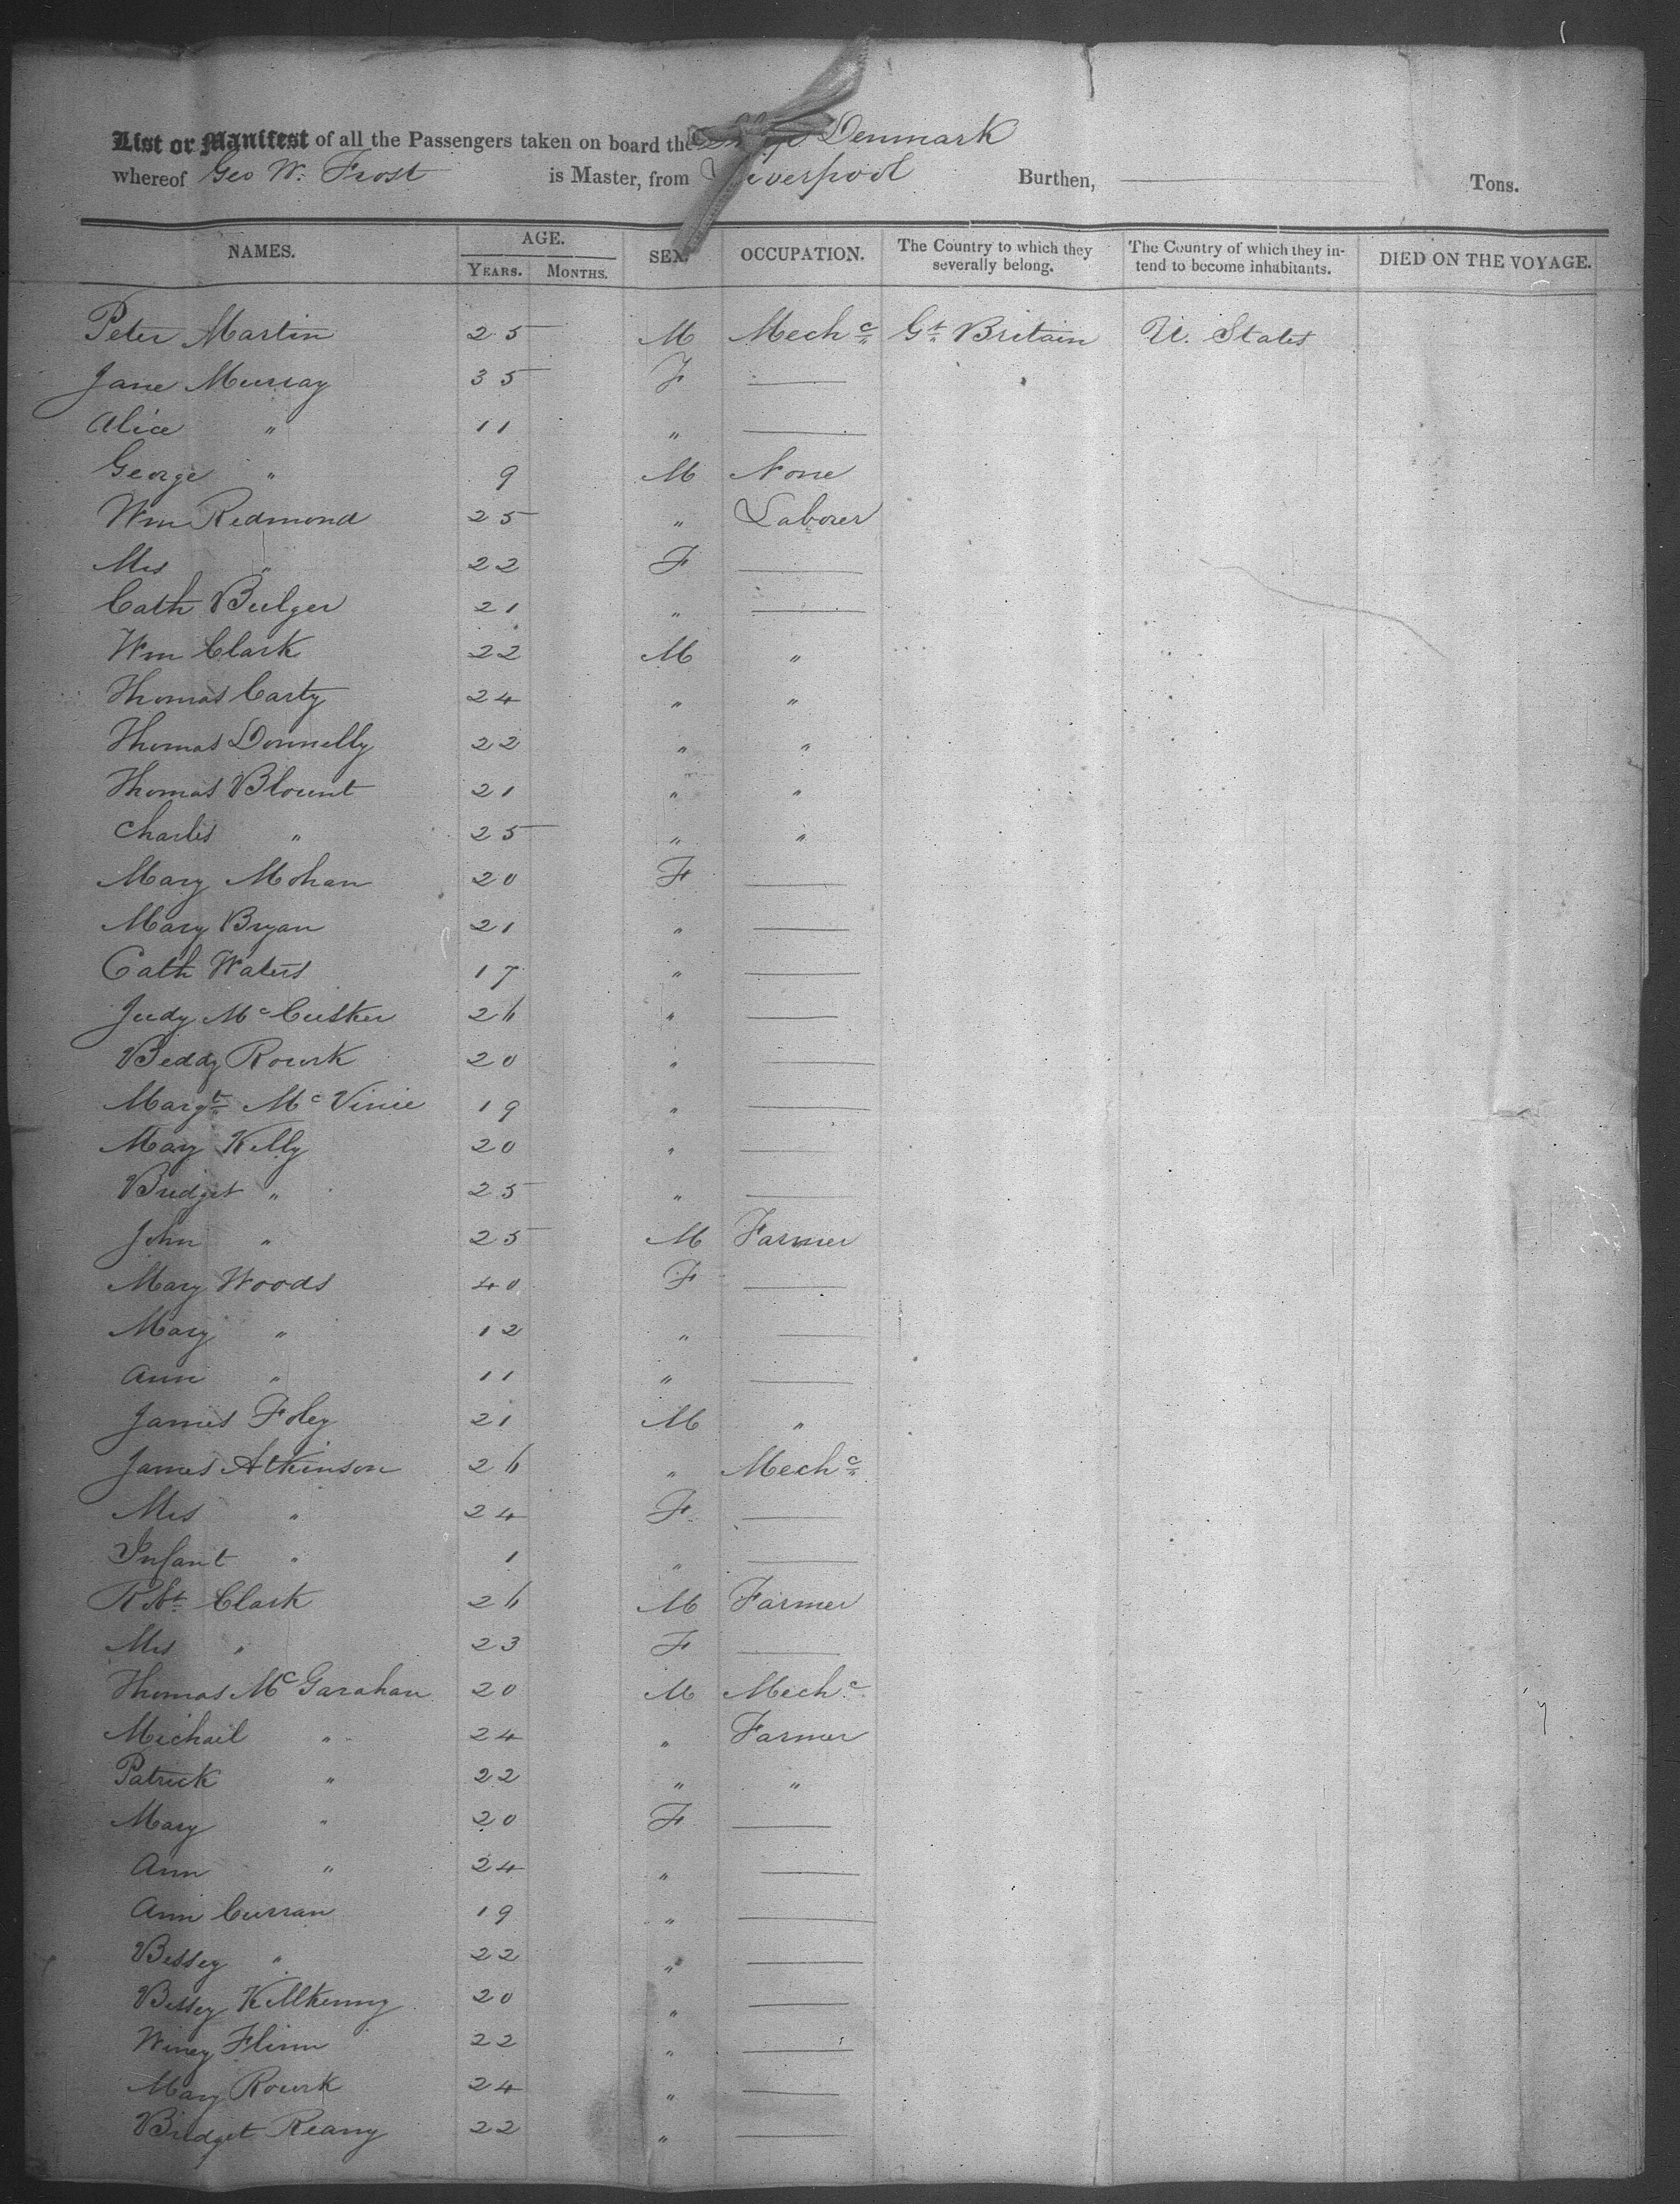 List or Manifest of all the Passengers taken on board the Ship Denmark
whereof Geo W. Frost is Master, from Liverpool Burthen, Tons.
NAMES. AGE. YEARS. MONTHS. SEX. OCCUPATION. The Country to which they severally belong. The Country of which they intend to become inhabitants. DIED ON THE VOYAGE.
Peter Martin 25 M Mechc Gt Britain U. States
Jane Murray 35 F —
Alice " 11 " —
George " 9 M None
Wm Redmond 25 " Laborer
Mrs " 22 F —
Cath Bulger 21 " —
Wm Clark 22 M "
Thomas Carty 24 " "
Thomas Donnelly 22 " "
Thomas Blount 21 " "
Charles " 25 " "
Mary Mohan 20 F —
Mary Bryan 21 " —
Cath Waters 17 " —
Judy McCusker 26 " —
Beddy Rourk 20 " —
Margt McVinie 19 " —
Mary Kelly 20 " —
Bridget " 25 " —
John " 25 M Farmer
Mary Woods 40 F —
Mary " 12 " —
Ann " 11 " —
James Foley 21 M "
James Atkinson 26 " Mechc
Mrs " 24 F —
Infant " 1 " —
Robt Clark 26 M Farmer
Mrs " 23 F —
Thomas McGarahan 20 M Mechc
Michail " 24 " Farmer
Patrick " 22 " "
Mary " 20 F —
Ann " 24 " —
Ann Curran 19 " —
Bessey " 22 " —
Bessey Killkenny 20 " —
Winey Flinn 22 " —
Mary Rourk 24 " —
Bridget Reany 22 " —